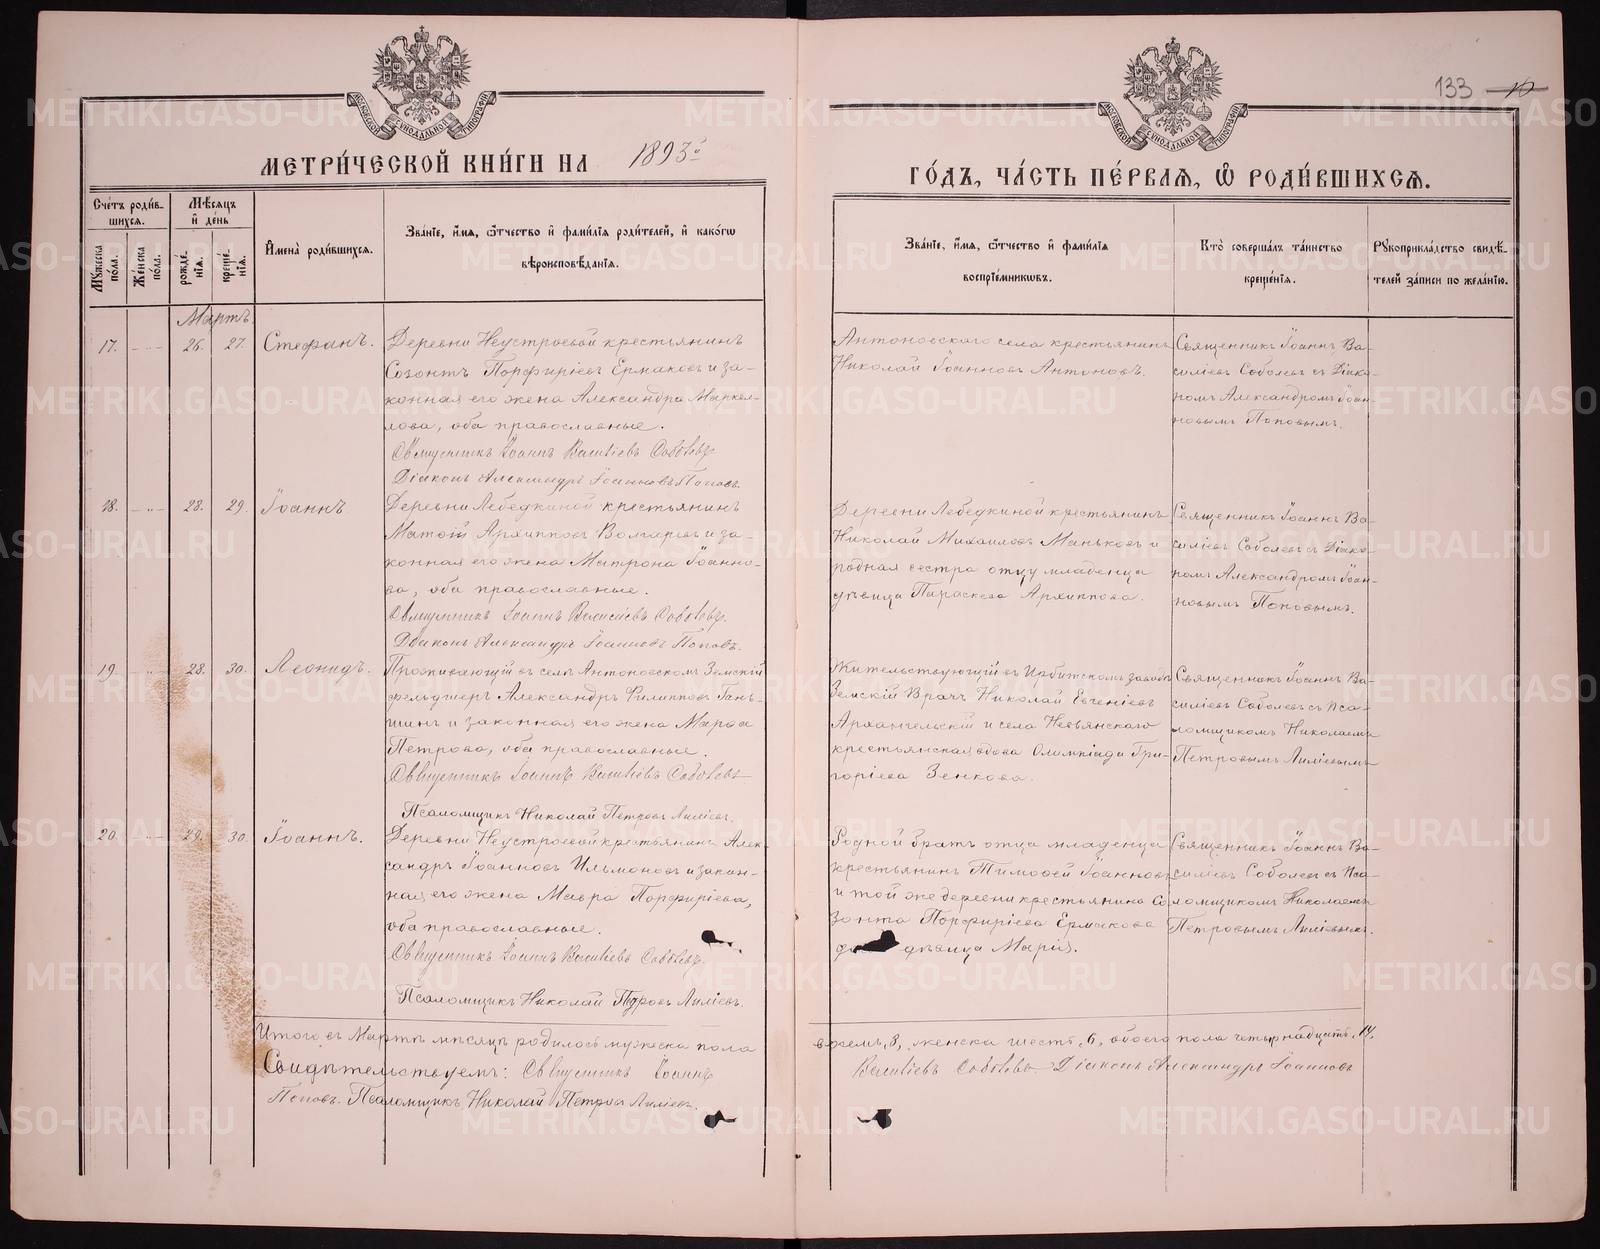 133 10
МОСКОВСКОЙ СѴНОДАЛЬНОЙ ТИПОГРАФІИ
МОСКОВСКОЙ СѴНОДАЛЬНОЙ ТИПОГРАФІИ
МЕТРИ́ЧЕСКОЙ КНИ́ГИ НА 1893й
ГО́ДЪ, ЧА́СТЬ ПЕ́РВАЯ, Ѡ РОДИ́ВШИХСЯ.
Сче́тъ роди́в-
шихся.
Мѣ́сяцъ
и҆ де́нь
Му́жеска по́ла.
Же́нска по́ла.
рожде́нїя.
креще́нїя.
И҆мена̀ роди́вшихся.
Зва́нїе, и҆́мя, ѻ҆́тчество и҆ фами́лїя роди́телей, и҆ како́гѡ
вѣроисповѣ́данїя.
Зва́нїе, и҆́мя, ѻ҆́тчество и҆ фами́лїя
воспрїе́мникѡвъ.
Кто̀ соверша́лъ та́инство
креще́нїя.
Рꙋкоприкла́дство свидѣ́-
телей за́писи по жела́нїю.
Мартъ.
17. 26. 27. Стефанъ.
Деревни Неустроевой крестьянинъ
Созонтъ Порфиріевъ Ермаковъ и за-
конная его жена Александра Маркел-
лова, оба православные.
Священникъ Іоаннъ Василіевъ Соболевъ.
Діаконъ Александръ Іоанновъ Поповъ.
Антоновскаго села крестьянинъ
Николай Іоанновъ Антоновъ.
Священникъ Іоаннъ Ва-
силіевъ Соболевъ съ Діако-
номъ Александромъ Іоан-
новымъ Поповымъ.
18. 28. 29. Іоаннъ
Деревни Лебедкиной крестьянинъ
Матѳій Архипповъ Волгаревъ и за-
конная его жена Матрона Іоанно-
ва, оба православные.
Священникъ Іоаннъ Василіевъ Соболевъ.
Діаконъ Александръ Іоанновъ Поповъ.
Деревни Лебедкиной крестьянинъ
Николай Михаиловъ Маньковъ и
родная сестра отцу младенца
дѣвица Параскева Архиппова.
Священникъ Іоаннъ Ва-
силіевъ Соболевъ съ Діако-
номъ Александромъ Іоан-
новымъ Поповымъ.
19. 28. 30. Леонидъ.
Проживающій въ селѣ Антоновскомъ Земскій
фельдшеръ Александръ Филипповъ Гань-
шинъ и законная его жена Марѳа
Петрова, оба православные.
Священникъ Іоаннъ Василіевъ Соболевъ
Псаломщикъ Николай Петровъ Лиліевъ.
Жительствующій въ Ирбитскомъ заводѣ
Земскій Врачъ Николай Евгеніевъ
Архангельскій и села Невьянскаго
крестьянская вдова Олимпіада Гри-
горіева Зенкова.
Священникъ Іоаннъ Ва-
силіевъ Соболевъ съ Пса-
ломщикомъ Николаемъ
Петровымъ Лиліевымъ
20. 29. 30. Іоаннъ.
Деревни Неустроевой крестьянинъ Алек-
сандръ Іоанновъ Ильмоновъ и закон-
ная его жена Мавра Порфиріева,
оба православные.
Священникъ Іоаннъ Василіевъ Соболевъ.
Псаломщикъ Николай Петровъ Лиліевъ.
Родной братъ отца младенца
крестьянинъ Тимоѳей Іоанновъ
и той же деревни крестьянина Со-
зонта Порфиріева Ермакова
дѣвица Марія.
Священникъ Іоаннъ Ва-
силіевъ Соболевъ съ Пса-
ломщикомъ Николаемъ
Петровымъ Лиліевымъ.
Итого въ Мартѣ мѣсяцѣ родилось мужеска пола
восемь, 8, женска шесть, 6, обоего пола четырнадцать, 14.
Свидѣтельствуемъ: Священникъ Іоаннъ
Василіевъ Соболевъ. Діаконъ Александръ Іоанновъ
Поповъ. Псаломщикъ Николай Петровъ Лиліевъ.
METRIKI.GASO-URAL.RU